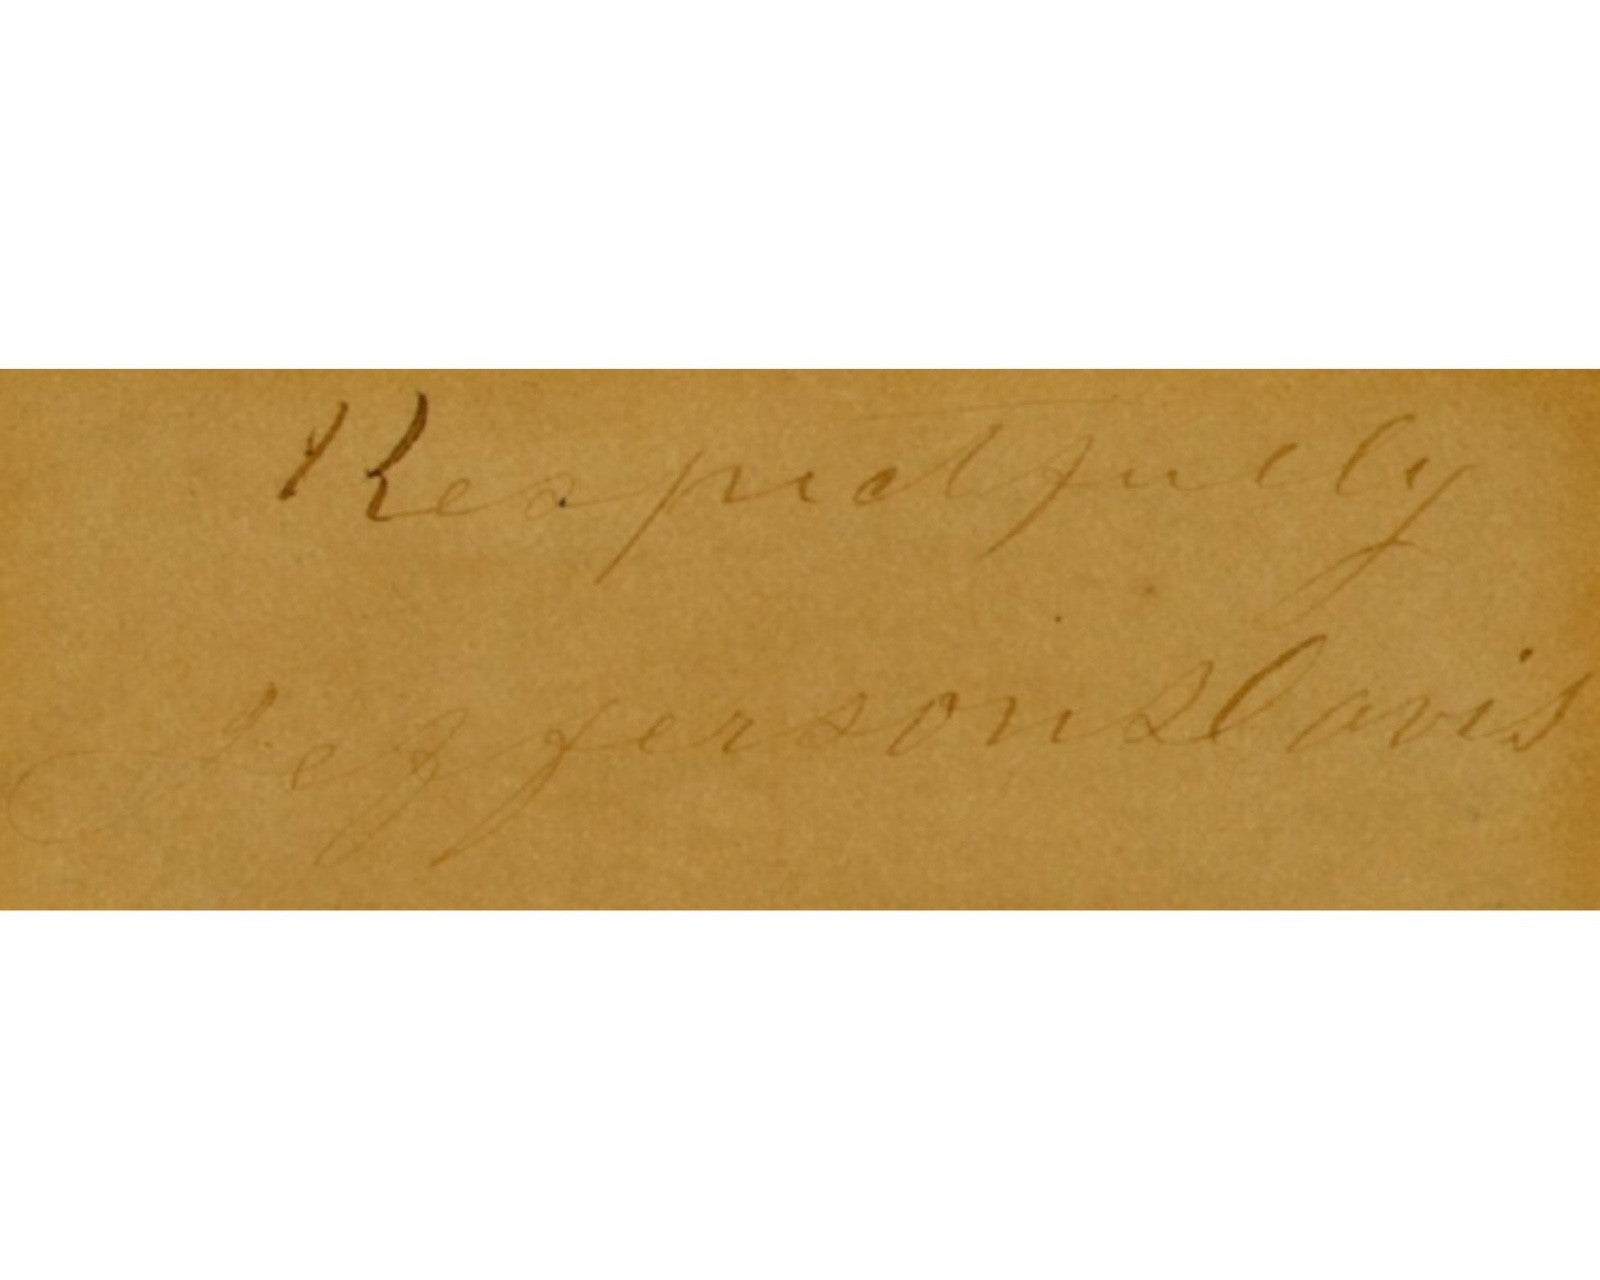 Respectfully
Jefferson Davis